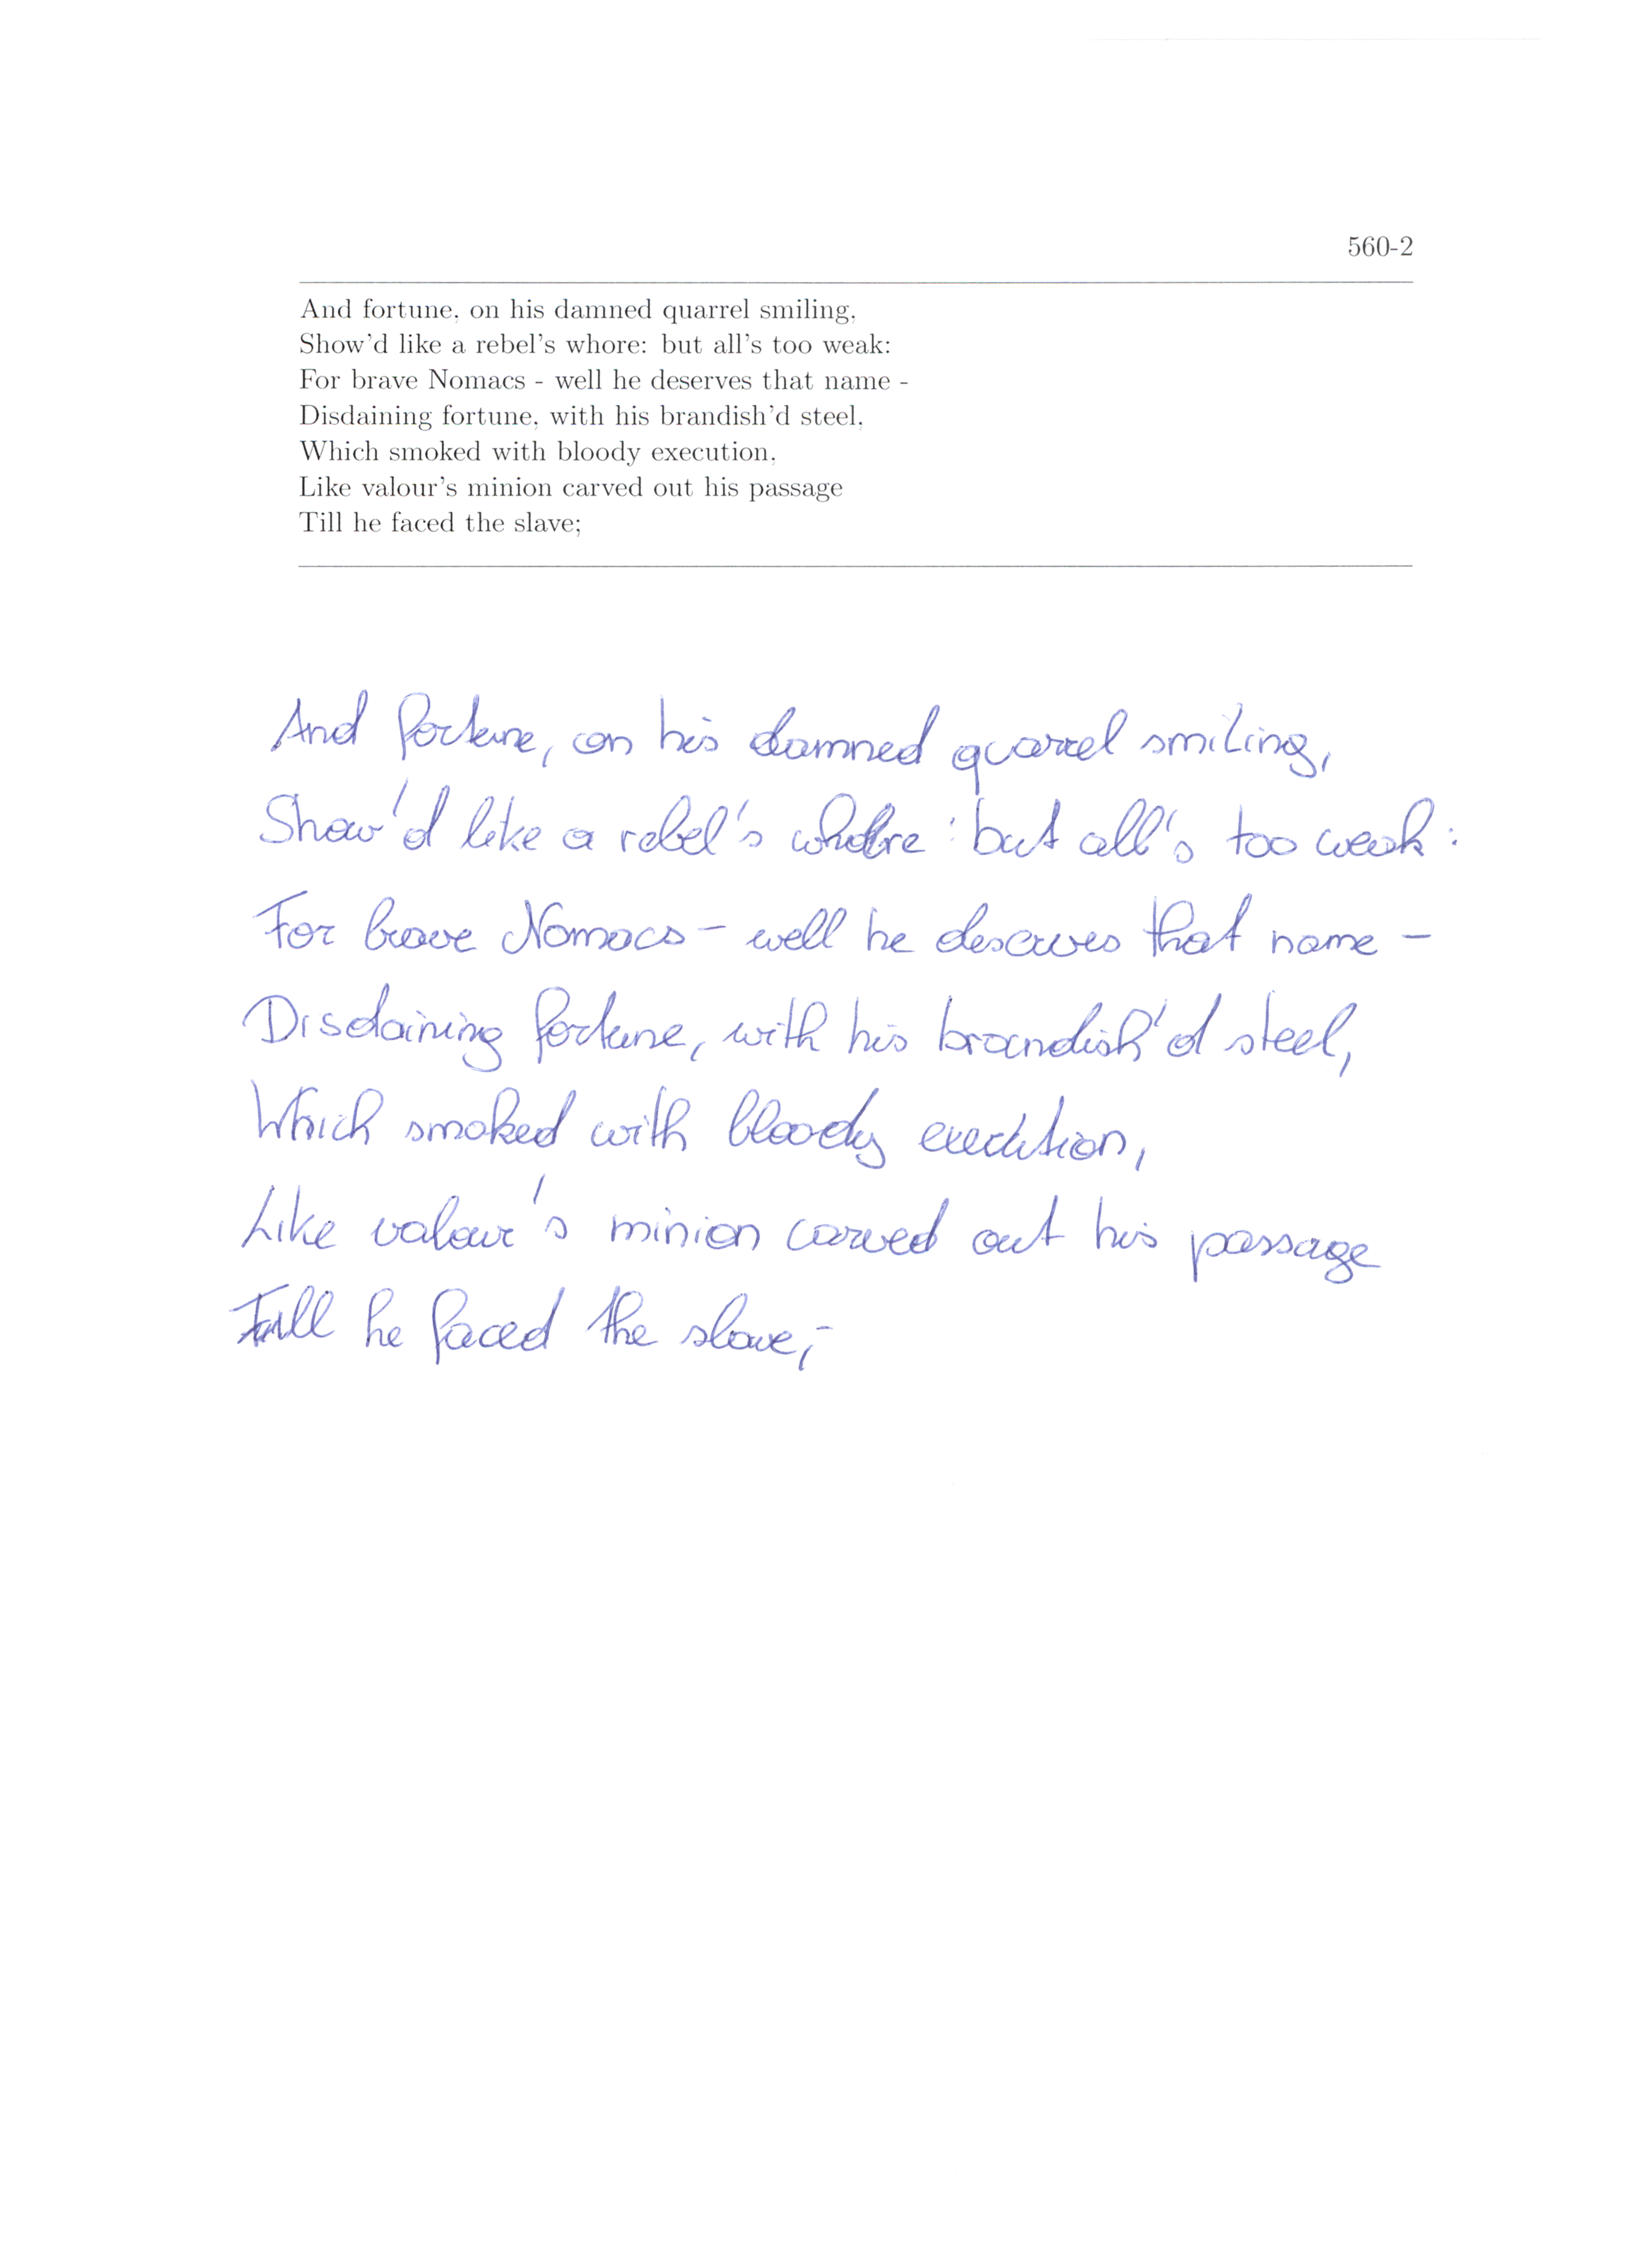 560-2
And fortune, on his damned quarrel smiling,
Show'd like a rebel's whore: but all's too weak:
For brave Nomacs - well he deserves that name -
Disdaining fortune, with his brandish'd steel,
Which smoked with bloody execution,
Like valour's minion carved out his passage
Till he faced the slave;
And fortune, on his damned quarrel smiling,
Show'd like a rebel's whore : but all's too weak :
For brave Nomacs - well he deserves that name -
Disdaining fortune, with his brandish'd steel,
Which smoked with bloody execution,
Like valour's minion carved out his passage
Till he faced the slave;